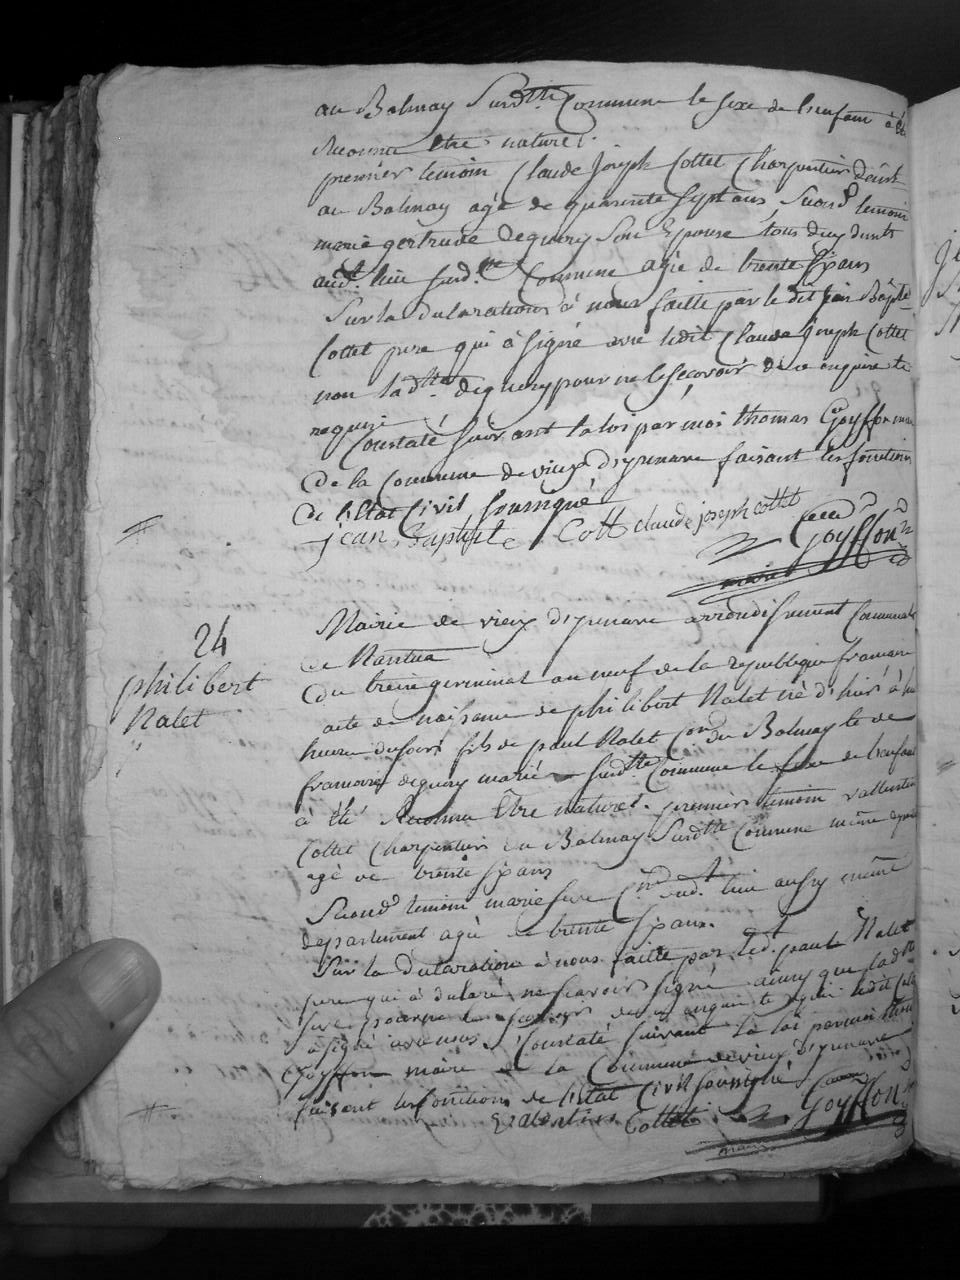 au Balmay Surditte Commune le sexe de lenfant à été
Reconnu être naturel.
premier temoin Claude Joseph Cottet Charpentier demt
au Balmay agé de quarente Sept ans Second temoin
marie gertrude deguery Son Epouse tous deux dmts
audt. lieu surdtte Commune agée de trente Six ans
Sur la declaration à nous faitte par le dit jean Baptte
Cottet pere qui à signé avec ledit Claude Joseph Cottet
non ladtte. deguery pour ne le scavoir de ce enquire et
require
Constaté Suivant la loi par moi thomas Goyffon maire
de la Commune de vieux dizenave faisant les fonctions
de lEtat Civil soussigné
jean Baptiste Cott claude joseph cottet
Goyffon
maire
24
philibert
Nalet
Mairie de vieux dizenave arrondissement Communal
de Nantua
du treize germinal an neuf de la republique francaise
acte de naissance de philibert Nalet né d'hier à
heure du soir fils de paul Nalet du Balmay et de
francoise deguery mariés surdtte Commune le sexe de lenfant
à été Reconnu Être naturel. premier temoin vallentin
Cottet Charpentier au Balmay Surdtte Commune même
agé de trente Six ans
Second temoin marie sudt. lieu aussy même
departement agée de trente Six ans.
Sur la declaration à nous faitte par ledt. paul Nalet
pere qui à declaré ne scavoir signé ainsy que ladtte
de ce enqui et requi ledit
à signé avec nous Constaté suivant la loi par moi
Goyffon maire de la Commune de vieux dizenave
faisant les fonctions de lEtat Civil soussigné
Valentin Cottet
Goyffon
maire